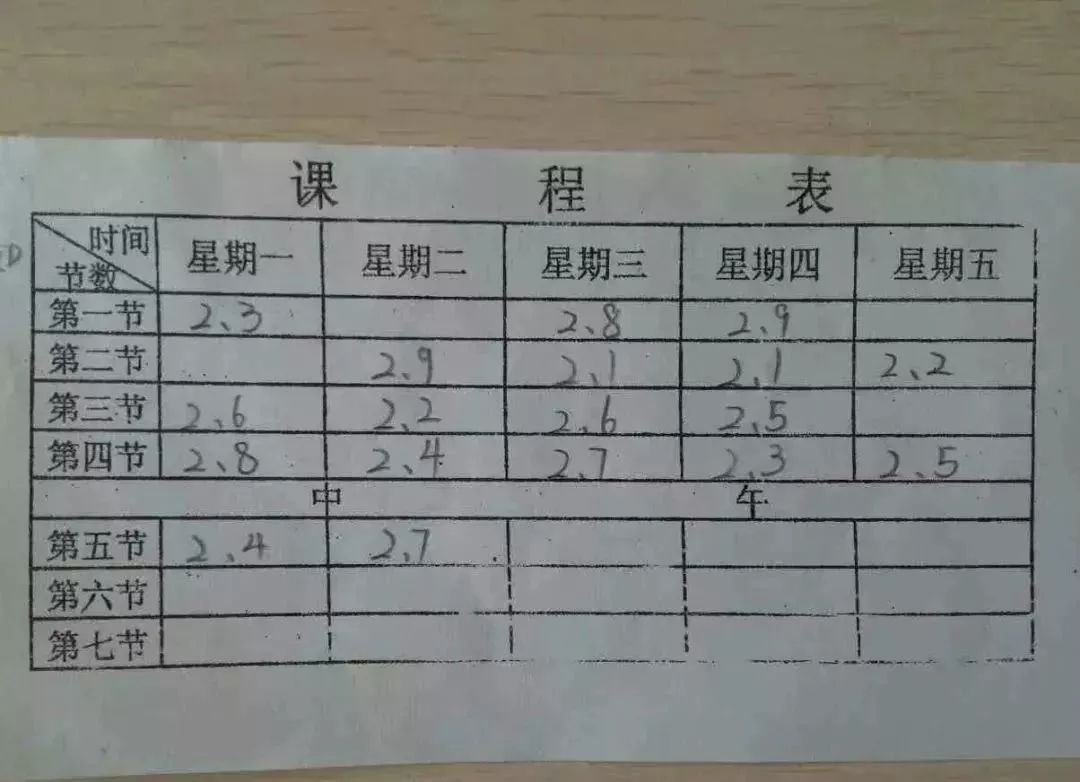 课 程 表
时间 节数 星期一 星期二 星期三 星期四 星期五
第一节 2、3 2、8 2、9
第二节 2、9 2、1 2、1 2、2
第三节 2、6 2、2 2、6 2、5
第四节 2、8 2、4 2、7 2、3 2、5
中 午
第五节 2、4 2、7
第六节
第七节